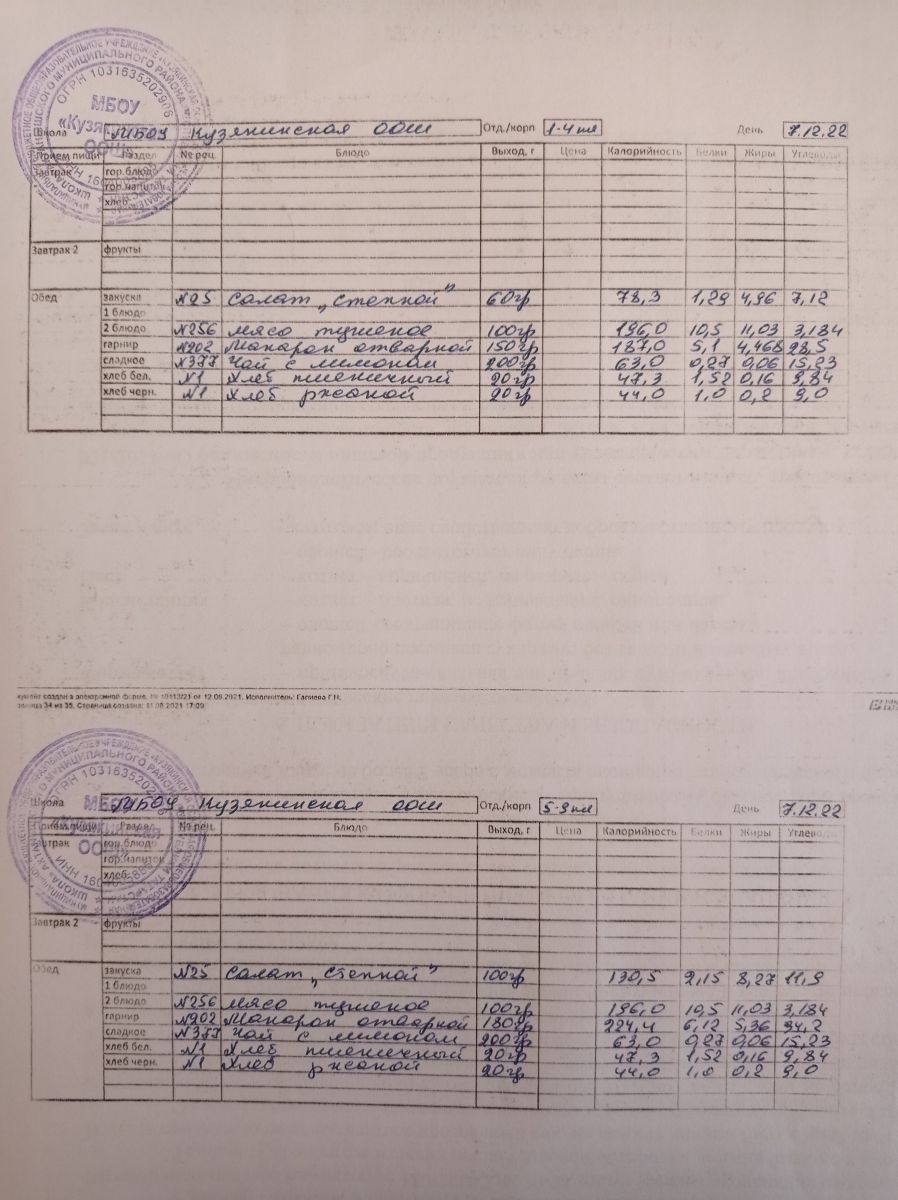 МБОУ
ОГРН 1031635202906
Школа МБОУ Кузякинская ООШ Отд./корп 1-4 кл День 7.12.22
Прием пищи Раздел № рец. Блюдо Выход, г Цена Калорийность Белки Жиры Углеводы
Завтрак гор.блюдо
гор.напиток
хлеб
Завтрак 2 фрукты
Обед закуска №25 Салат „Степной" 60гр 78,3 1,29 4,96 7,12
1 блюдо
2 блюдо №256 Мясо тушеное 100гр 196,0 10,5 11,03 3,184
гарнир №202 Макарон отварной 150гр 187,0 5,1 4,468 28,5
сладкое №377 Чай с лимоном 200гр 63,0 0,27 0,06 15,23
хлеб бел. №1 Хлеб пшеничный 20гр 47,3 1,52 0,16 9,84
хлеб черн. №1 Хлеб ржаной 20гр 44,0 1,0 0,2 9,0
создан в электронной форме. № 10113/21 от 12.08.2021. Исполнитель: Гагиева Г.Н.
Страница 34 из 35. Страница создана: 11.08.2021 17:09
МБОУ
Школа МБОУ Кузякинская ООШ Отд./корп 5-9 кл День 7.12.22
Прием пищи Раздел № рец. Блюдо Выход, г Цена Калорийность Белки Жиры Углеводы
Завтрак гор.блюдо
гор.напиток
хлеб
Завтрак 2 фрукты
Обед закуска №25 Салат „Степной" 100гр 130,5 2,15 8,27 11,9
1 блюдо
2 блюдо №256 Мясо тушеное 100гр 196,0 10,5 11,03 3,184
гарнир №202 Макарон отварной 180гр 224,4 6,12 5,36 34,2
сладкое №377 Чай с лимоном 200гр 63,0 0,27 0,06 15,23
хлеб бел. №1 Хлеб пшеничный 20гр 47,3 1,52 0,16 9,84
хлеб черн. №1 Хлеб ржаной 20гр 44,0 1,0 0,2 9,0